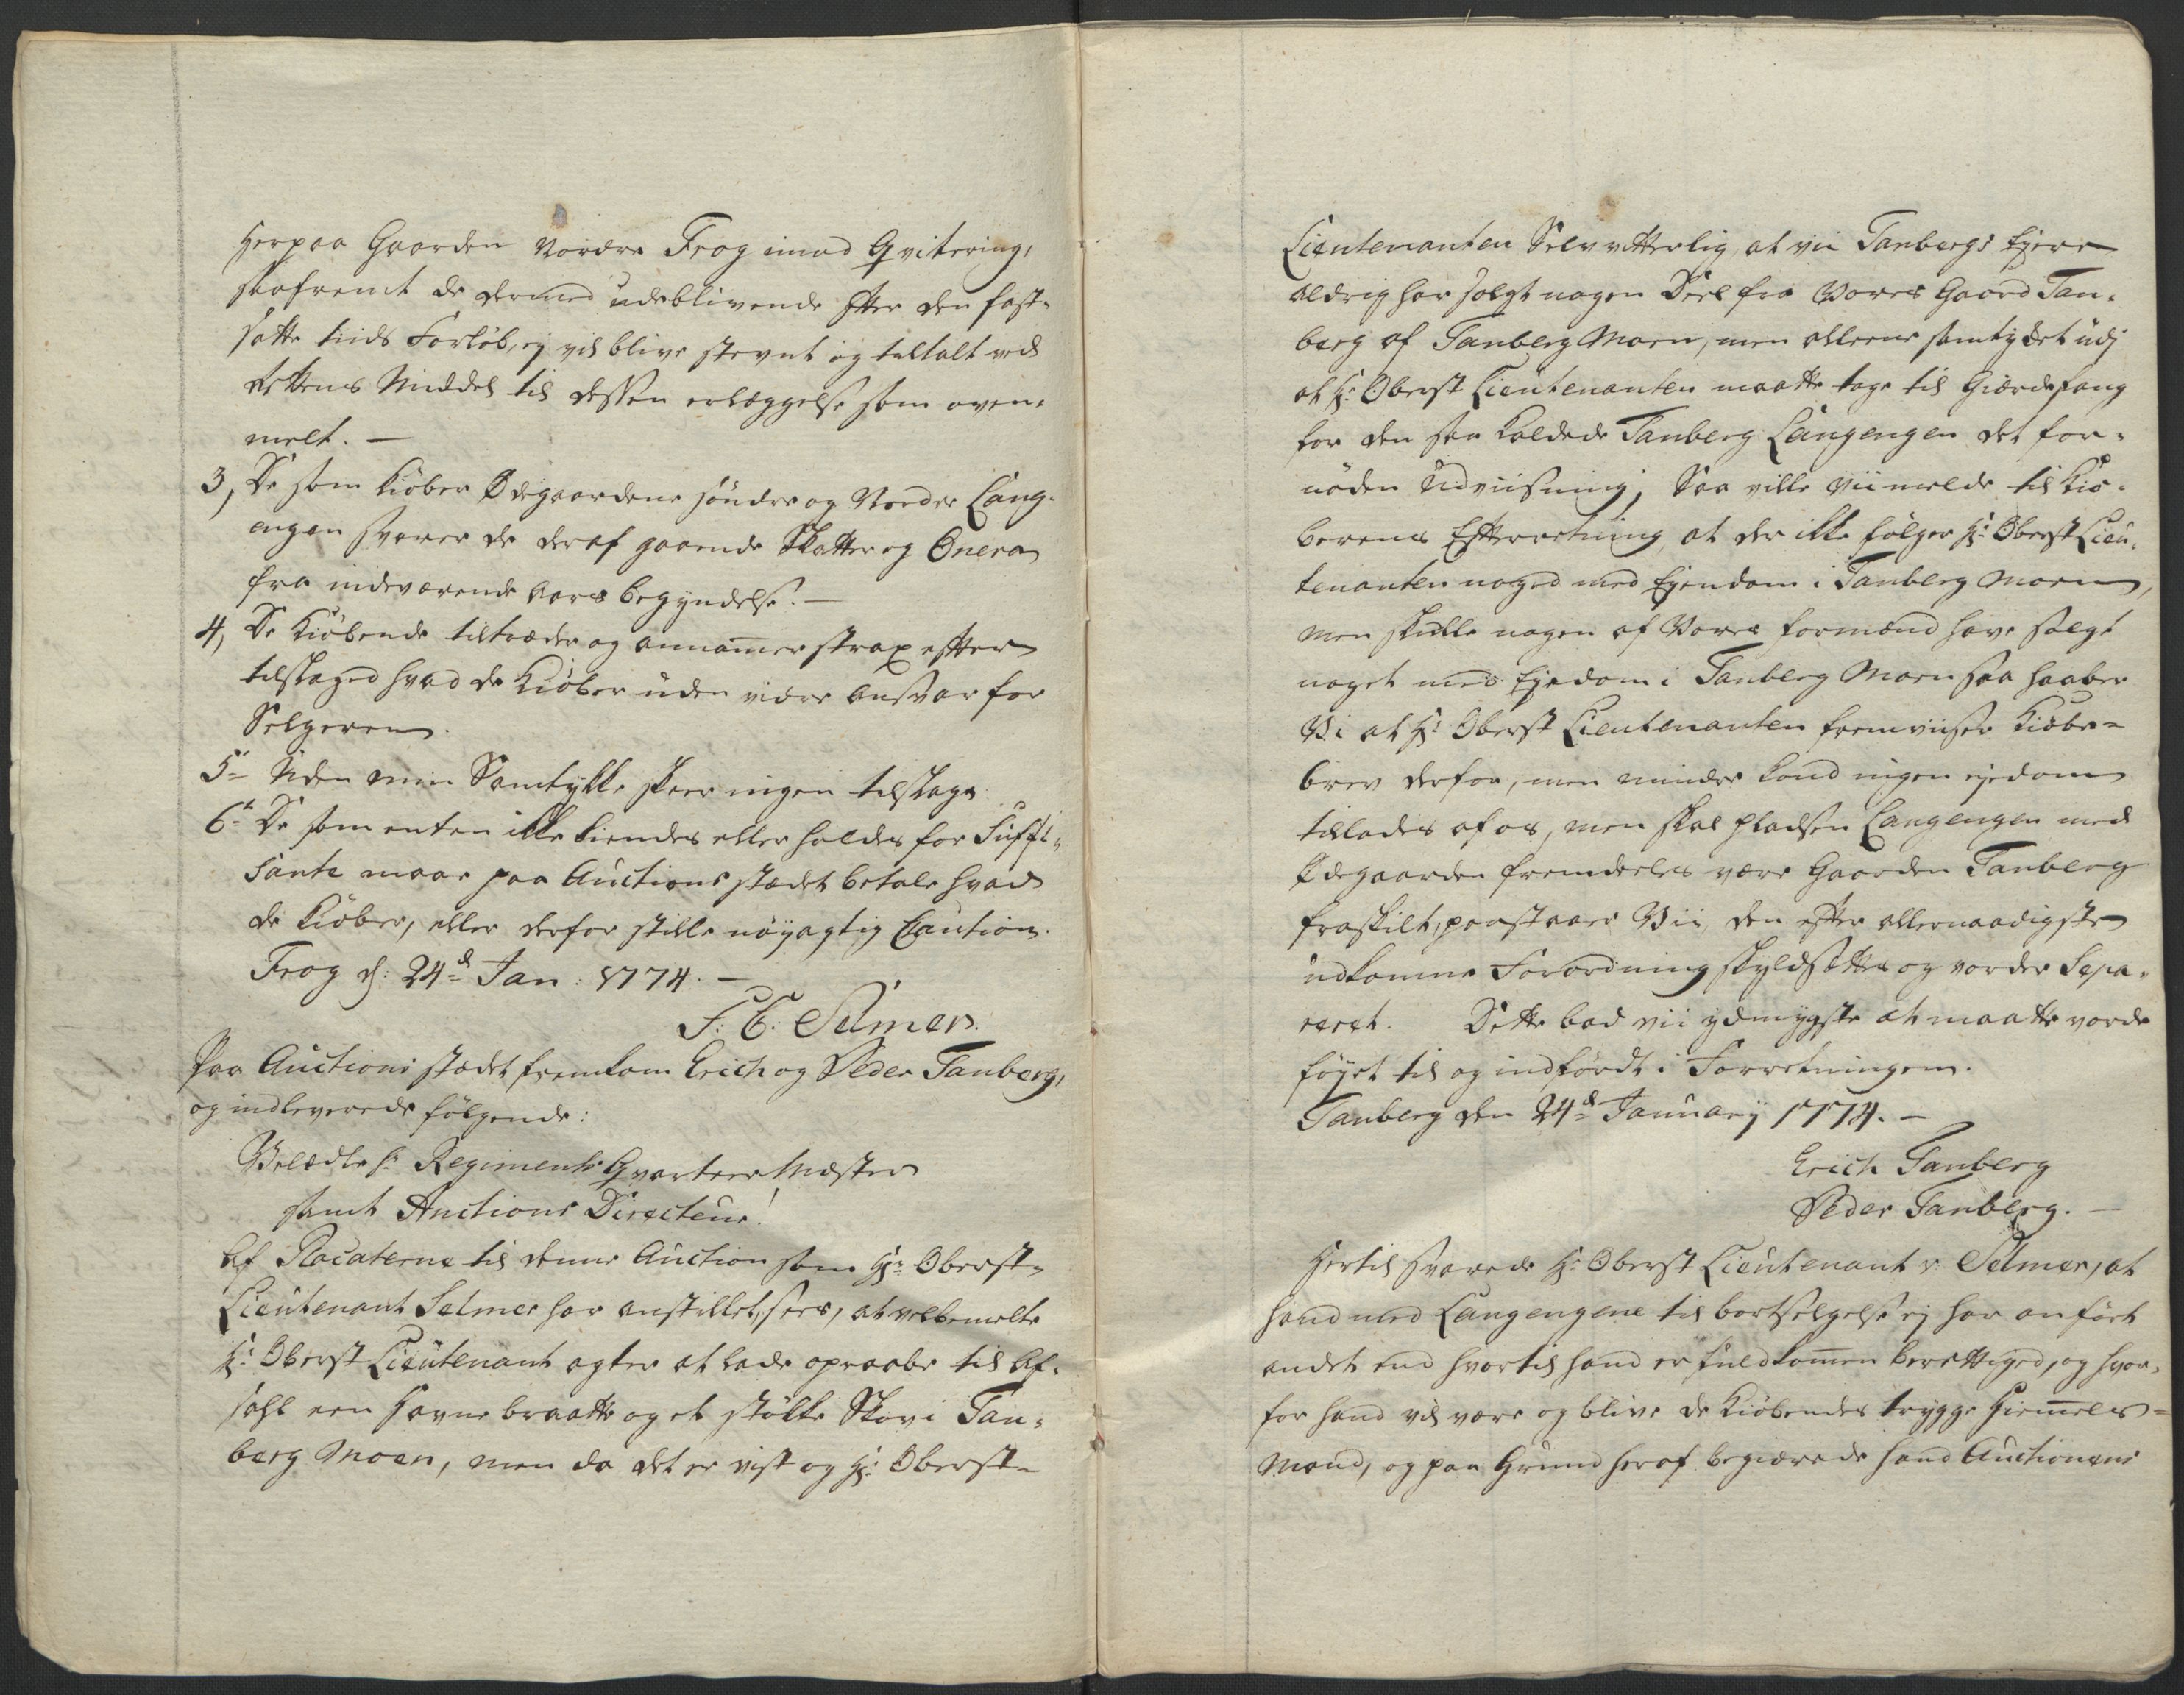 herpaa Gaarden Nordre Frog imod Qvitering,
saafremt de dermed udeblivende Efter den fast-
satte tiids Forløb, ej vil blive stevnt og tiltalt ved
Rettens Middel til dessen erlæggelse som oven-
melt. —
3, De som kiøber Ødegaardene søndre og Norder Lang-
engen svarer de deraf gaaende Skatter og Onera
fra indeværende aars begyndelse. —
4, De Kiøbende tiltræder og annammer strax efter
tilslaged hvad de Kiøber uden videre ansvar for
Selgeren.
5- Uden min Samtykke skeer ingen tilslag.
6te De som enten ikke kiendes eller holdes for Suffi-
sante maae paa Auctions stædet betale hvad
de kiøber, eller derfor stille nøyagtig Caution.
Frog d: 24d Jan: 1774. —
F: C: Selmer.
Paa Auctions stædet fremkom Erich og Peder Tanberg,
og indleverede følgende:
Velædle hr Regiments Qvarteer Mæster
samt Auctions Directeur!
Af Placaterne til denne Auction som Hr: Oberst-
Lieutenant Selmer har anstillet, sees, at velbemelte
Hr: Oberst Lieutenant agter at lade opraabe til Af-
sahl een Havnebraatte og et støkke Skov i Tan-
berg Moen, men da det er vist og Hr: Oberst-
Lieutenanten Selv vitterlig, at vii Tanbergs Ejere
aldrig har solgt nogen Deel fra Vores Gaard Tan-
berg af Tanberg Moen, men alleene samtykket udj
at Hr: Oberst Lieutenanten maatte tage til Giærdefang
for den saa kaldede Tanberg Langengen det for-
nøden Udviisning, Saa ville Vii melde til Kiø-
berens Efterretning, at der ikke følger Hr: Oberst Lieu-
tenanten noged med Ejendom i Tanberg Moen,
men skulle nogen af Vores formænd have solgt
noget med Ejedom i Tanberg Moen saa haaber
Vi at Hr: Oberst Lieutenanten fremviiser Kiøbe-
brev derfor, men mindre kand ingen ejedom
tillades af os, men skal pladsen Langengen med
Ødegaarden fremdeeles være Gaarden Tanberg
fraskilt, paastaaer Vii, den efter allernaadigste
udkomne Forordning skyldsættes og vorder Sepa-
reret. Dette bad vii ydmygste at maatte vorde
føyet til og indført i Forretningen.
Tanberg den 24d Januarij 1774. —
Erich Tanberg
Peder Tanberg. —
Hertil svarede Hr: Oberst Lieutenant v: Selmer, at
hand med Langengene til bortselgelse ej har anført
andet end hvortil hand er fuldkommen berettiged, og hvor-
for hand vil være og blive de kiøbendes trygge Hiemmels-
Mand, og paa Grund heraf begiærede hand Auctionens